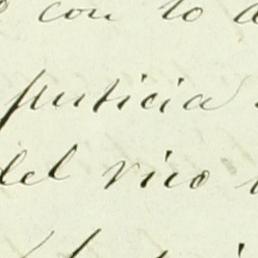 con to
justicia
del rico